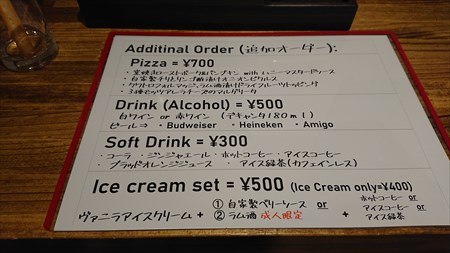 Additinal Order (追加オーダー):
Pizza = ¥700
・窯焼きローストポーク&パンプキン with ハニーマスタードソース
・自家製チリとリンゴ酢漬けオニオンピクルス
・クワトロフォルマッジ、ラム酒漬けドライフルーツトッピング
・3種モッツァレラチーズのマルゲリータ
Drink (Alcohol) = ¥500
白ワイン or 赤ワイン (デキャンタ180ml)
ビール⇒ ・Budweiser ・Heineken ・Amigo
Soft Drink = ¥300
・コーラ ・ジンジャエール ・ホットコーヒー ・アイスコーヒー
・ブラッドオレンジジュース ・アイス緑茶(カフェインレス)
Ice cream set = ¥500 (Ice Cream only=¥400)
ヴァニラアイスクリーム + ① 自家製ベリーソース or ② ラム酒 成人限定 + ホットコーヒー or アイスコーヒー or アイス緑茶